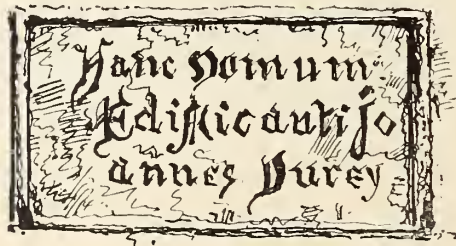 Hanc Domum
Edifficauti Jo
annes Durey